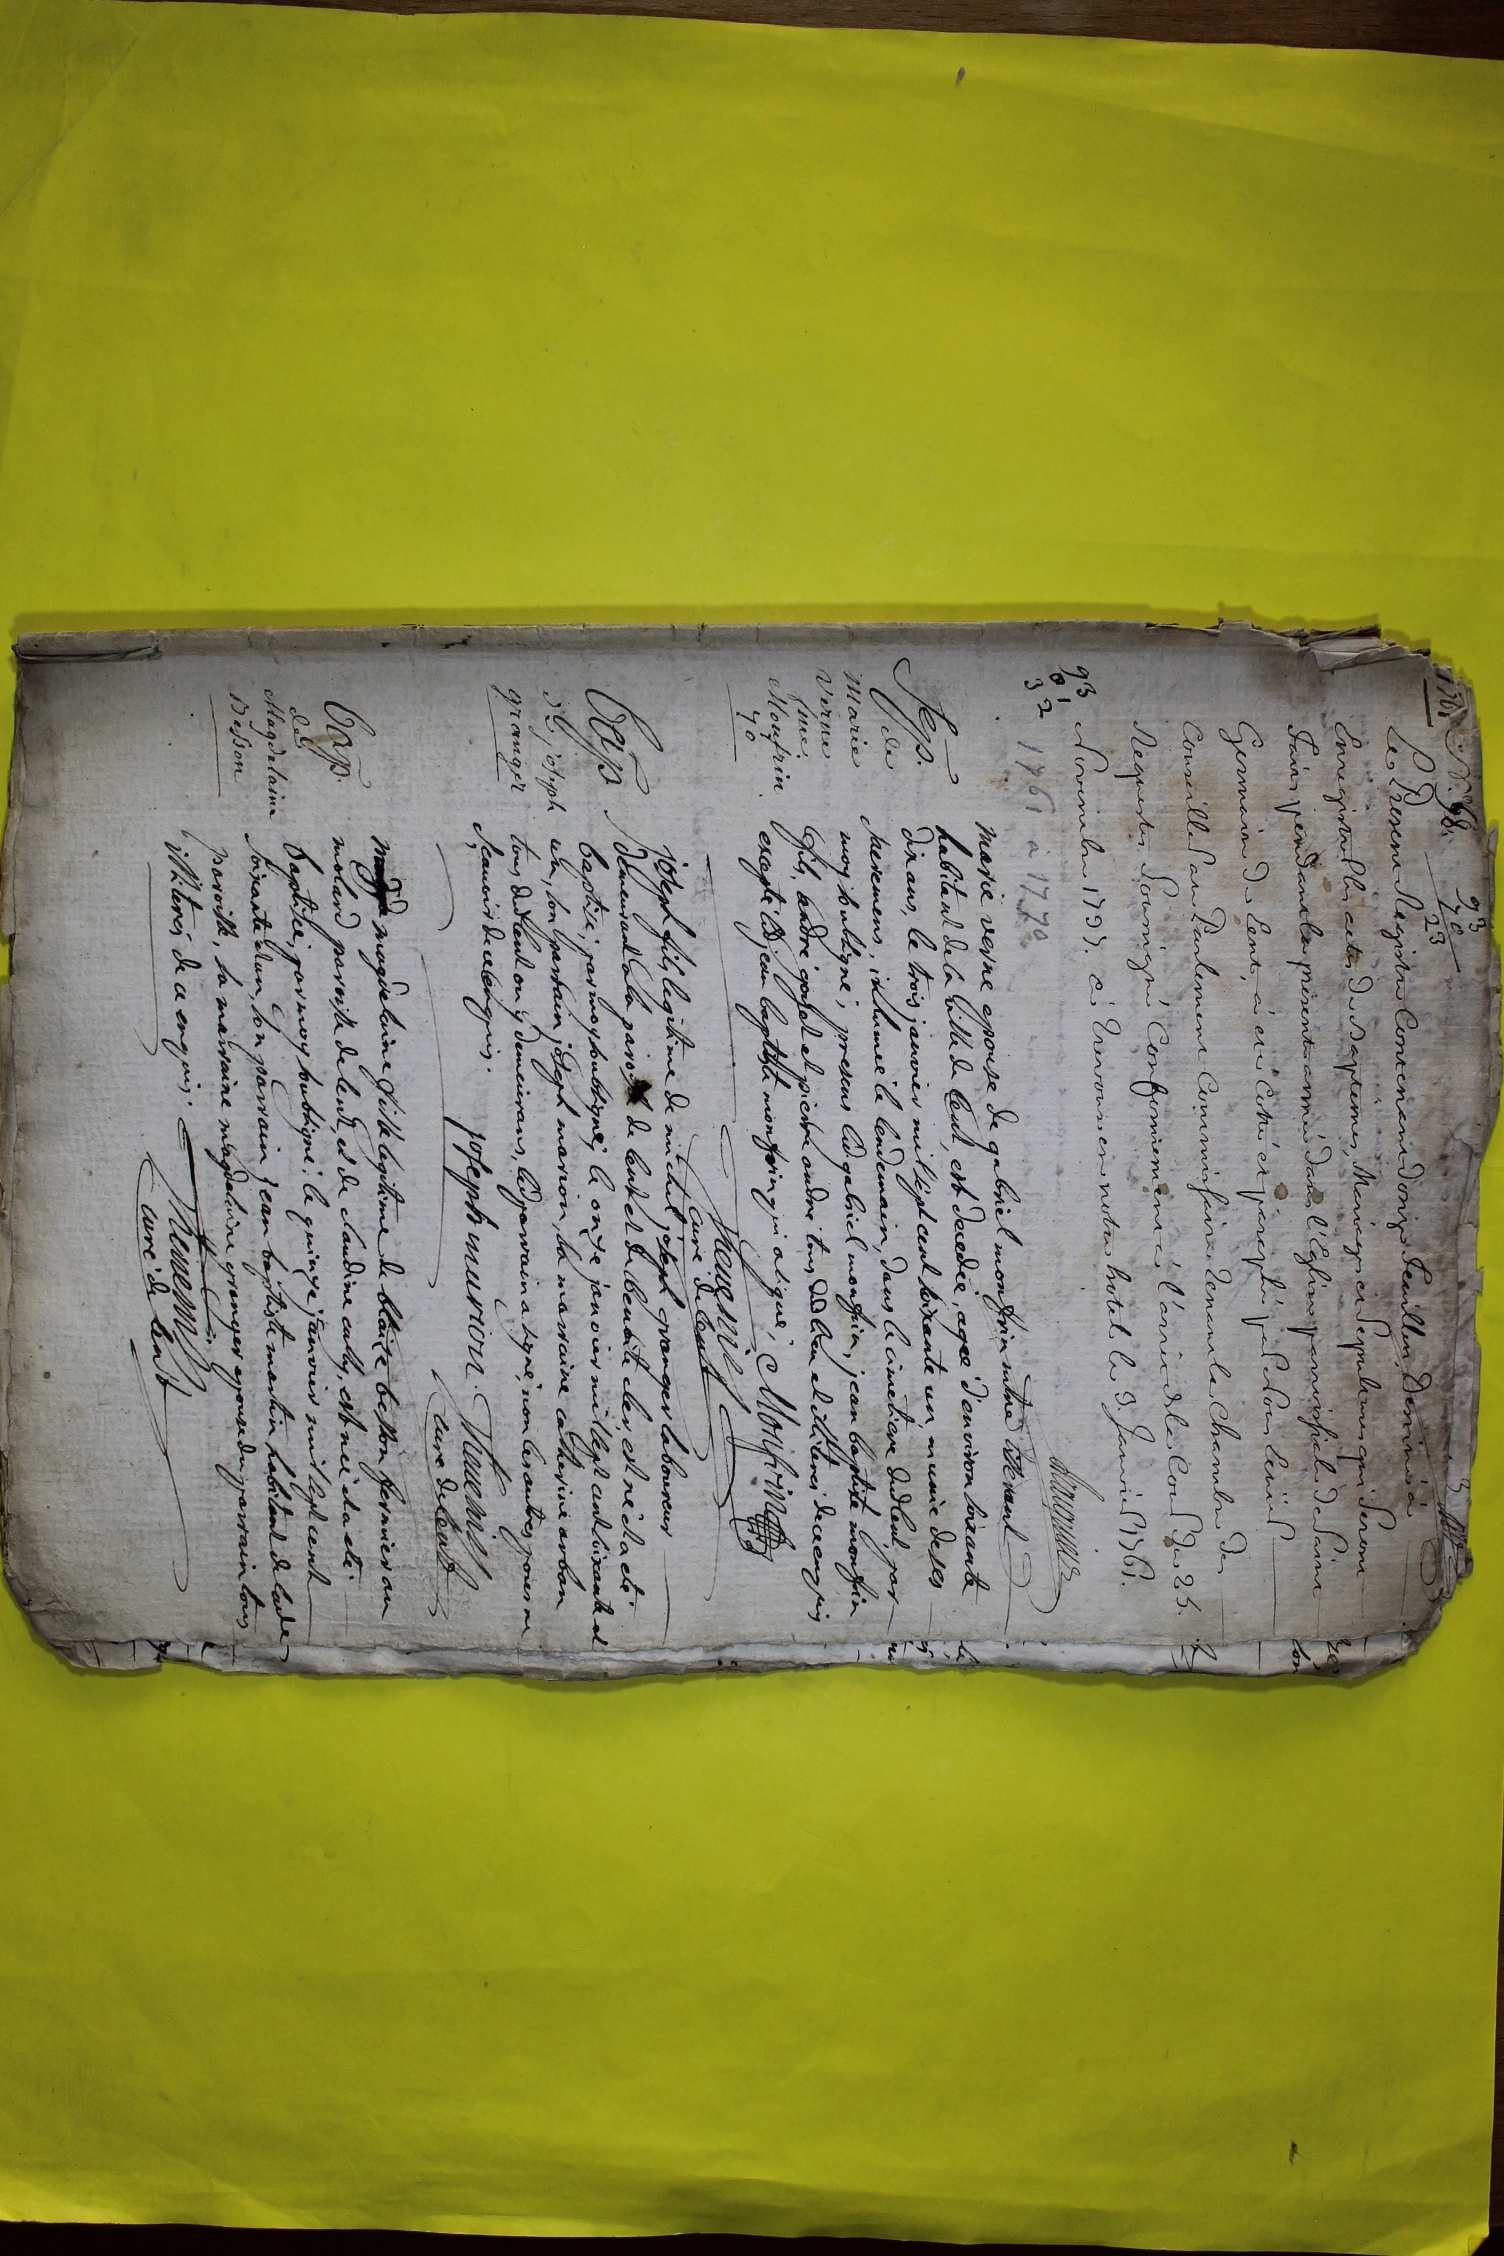 1761
N.º 98.
93
70
23
Le Present Registre Contenant douze feuillets Destiné à
Enregistrer les actes de Baptemes, Mariages et Sepultures qui Seront
Faits pendant la presente année dans l'Eglise parroissiale de Saint
Germain de Lent, a été Cotté et paraphé par Nous
Conseiller au Parlement Commissaire tenant la Chambre des
Requestes Soussigné Conformement à l'arrest de la Cour du 25.
Novembre 175 . à Trevoux en notre hotel le 3 Janvier 1761.
93
61
32
1761 à 1770
Sep.
de
Marie
Verne
fme
Monfrin
70
marie verne epouse de gabriel monfrin
habitant de la ville de lent, est decedée, agée d'environ soixante
dix ans, le trois janvier mil sept cent soixante un, munie de ses
sacremens, inhumée le lendemain, dans le cimetiere dud lent, par
moy soussigné; presens led gabriel monfrin, jean baptiste monfrin
fils, andré goyet et pierre andre tous dud lieu et illiterés de ce enquis
excepté led jean baptiste monfrin qui a signé; Monfrin
curé de lent
Bap.
de joseph
granger
joseph fils legitime de michel joseph granger laboureur
demeurant a la paroisse de lent et de benoite est né et a eté
baptisé, par moy soussigné, le onze janvier mil sept cent soixante et
un, son parrain joseph marion, sa marraine catherine arban
tous dud lent ou y demeurans, led parrain a signé, non les autres pour ne
scavoir de ce enquis.
joseph marion.
curé de lent
Bap.
de
Magdelaine
Besson
magdelaine fille legitime de blaise besson fermier au
molard paroisse de lent, et de claudine est née et a eté
baptisée, par moy soussigné: le quinze janvier mil sept cent
soixante et un, son parrain jean baptiste martin habitant de lade
paroisse, sa marraine magdelaine granger epouse du parrain tous
illiterés de ce enquis.
curé de lent